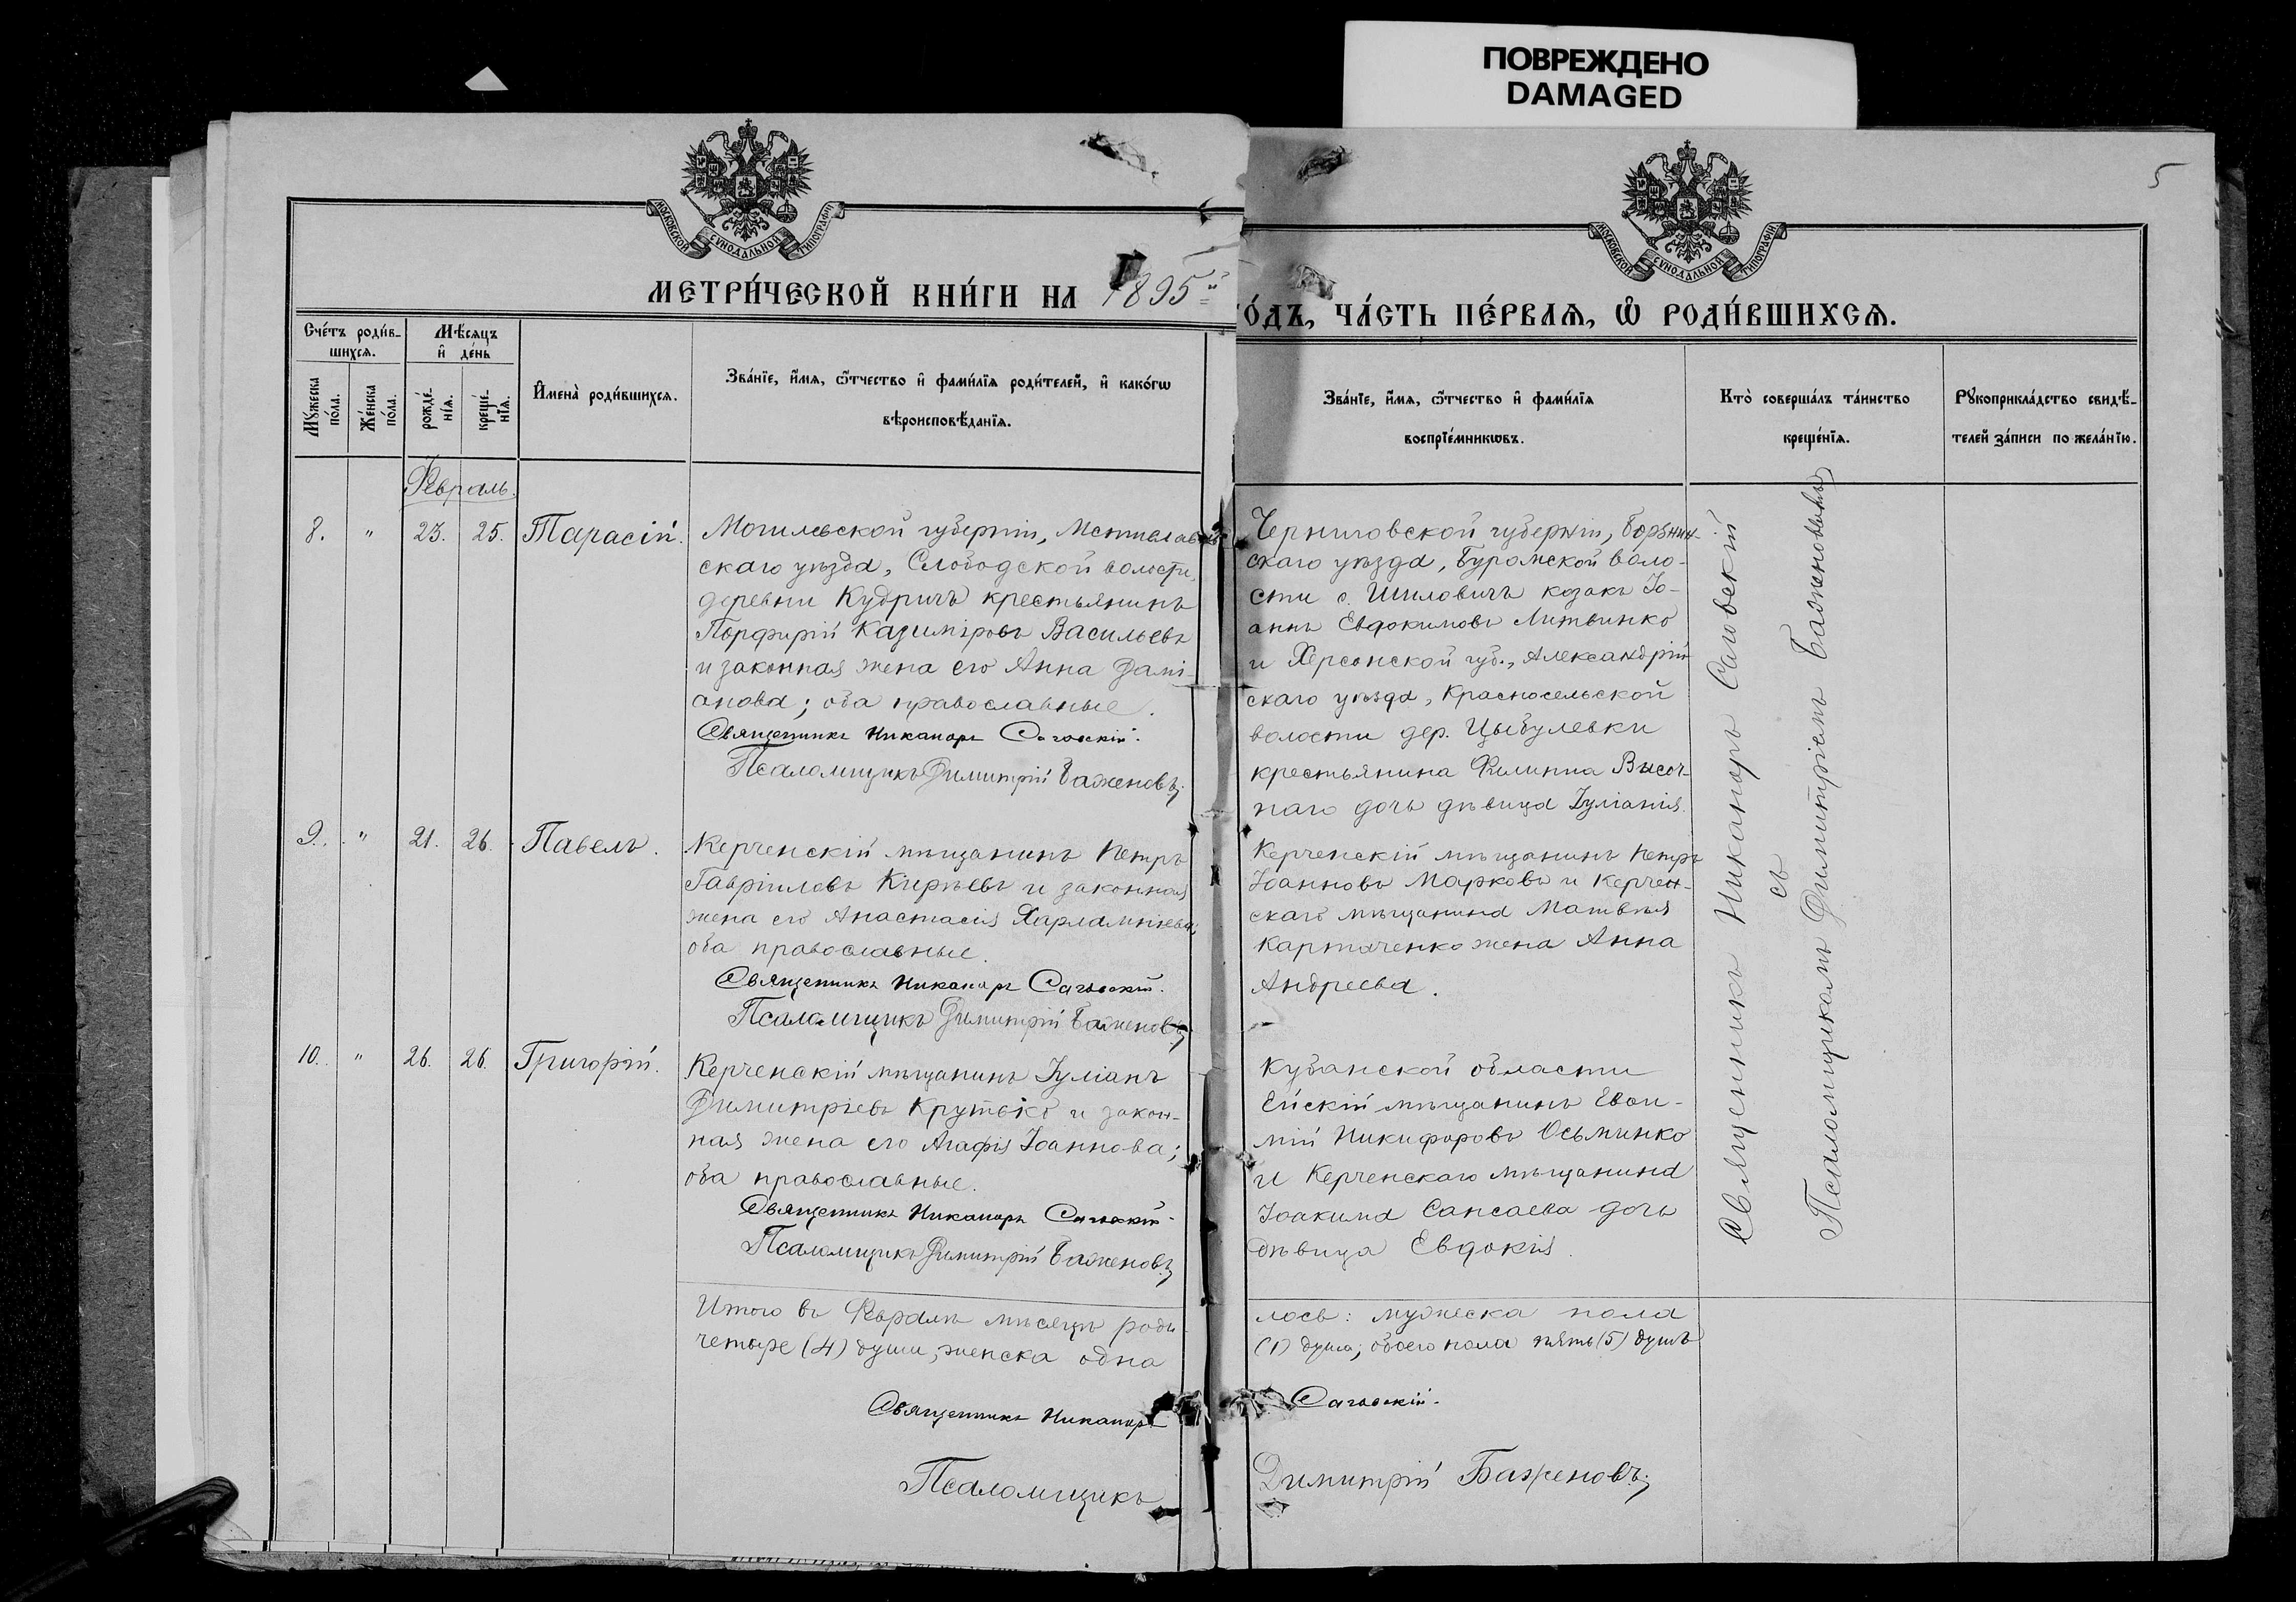 ПОВРЕЖДЕНО
DAMAGED
5
МОСКОВСКОЙ СѴНОДАЛЬНОЙ ТИПОГРАФІИ
МОСКОВСКОЙ СѴНОДАЛЬНОЙ ТИПОГРАФІИ
МЕТРИ́ЧЕСКОЙ КНИ́ГИ НА 1895й
О́ДЪ, ЧА́СТЬ ПЕ́РВАѦ, Ѽ РОДИ́ВШИХСѦ.
Сче́тъ роди́в-
шихсѧ.
Мѣ́сѧцъ
и҆ де́нь
Мꙋ́жеска по́ла.
Же́нска по́ла.
рожде́-
нїѧ.
креще́-
нїѧ.
И҆мена̀ роди́вшихсѧ.
Зва́нїе, и҆́мѧ, ѻ҆́тчество и҆ фами́лїѧ роди́телей, и҆ како́гѡ
вѣроисповѣ́данїѧ.
Зва́нїе, и҆́мѧ, ѻ҆́тчество и҆ фами́лїѧ
воспрїе́мникѡвъ.
Кто̀ соверша́лъ та́инство
креще́нїѧ.
Рꙋкоприкла́дство свидѣ́-
телей за́писи по жела́нїю.
Февраль.
8. " 23. 25. Тарасій.
Могилевской губерніи, Мстислав
скаго уѣзда, Слободской волости,
деревни Кудричъ крестьянинъ
Порфирій Казиміровъ Васильевъ
и законная жена его Анна Дамі-
анова; оба православные.
Священникъ Никаноръ Саговскій.
Псаломщикъ Димитрій Баженовъ;
Черниговской губерніи, Борзнин-
скаго уѣзда, Буромской воло-
сти с. Шиловичъ козакъ Іо-
аннъ Евдокимовъ Литвинко
и Херсонской губ., Александрій
скаго уѣзда, Красносельской
волости дер. Цыбулевки
крестьянина Филиппа Высоч-
наго дочь дѣвица Іуліанія.
9. " 21. 26. Павелъ.
Керченскій мѣщанинъ Петръ
Гавріиловъ Кирѣевъ и законная
жена его Анастасія Харлампіева;
оба православные.
Священникъ Никаноръ Саговскій.
Псаломщикъ Димитрій Баженовъ;
Керченскій мѣщанинъ Петръ
Іоанновъ Марковъ и Керчен-
скаго мѣщанина Матвѣя
Картаченко жена Анна
Андреева.
10. " 26. 26. Григорій.
Керченскій мѣщанинъ Іуліанъ
Димитріевъ Крутько и закон-
ная жена его Агафія Іоаннова;
оба православные.
Священникъ Никаноръ Саговскій.
Псаломщикъ Димитрій Баженовъ;
Кубанской области
Ейскій мѣщанинъ Евѳи-
мій Никифоровъ Осьминко
и Керченскаго мѣщанина
Іоакима Сансаева дочь
дѣвица Евдокія.
Священникъ Никаноръ Саговскій
съ
Псаломщикомъ Димитріемъ Баженовымъ
Итого въ Февралѣ мѣсяцѣ роди
лось: мужеска пола
четыре (4) души, женска одна
(1) душа; обоего пола пять (5) душъ
Священникъ Никаноръ Саговскій.
Псаломщикъ Димитрій Баженовъ;